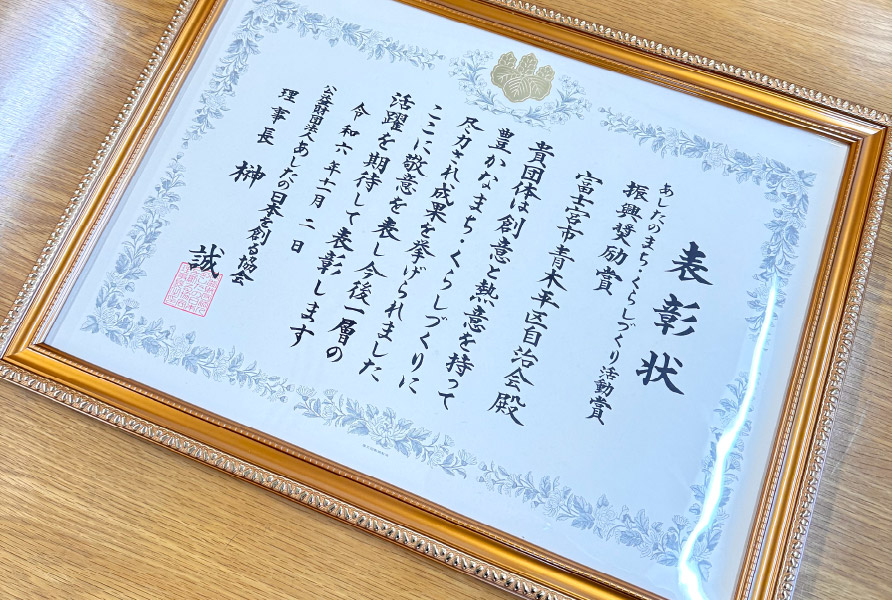 表彰状
あしたのまち・くらしづくり活動賞
振興奨励賞
富士宮市青木平区自治会殿
貴団体は創意と熱意を持って
豊かなまち・くらしづくりに
尽力され成果を挙げられました
ここに敬意を表し今後一層の
活躍を期待して表彰します
令和六年十一月二日
公益財団法人あしたの日本を創る協会
理事長 榊 誠